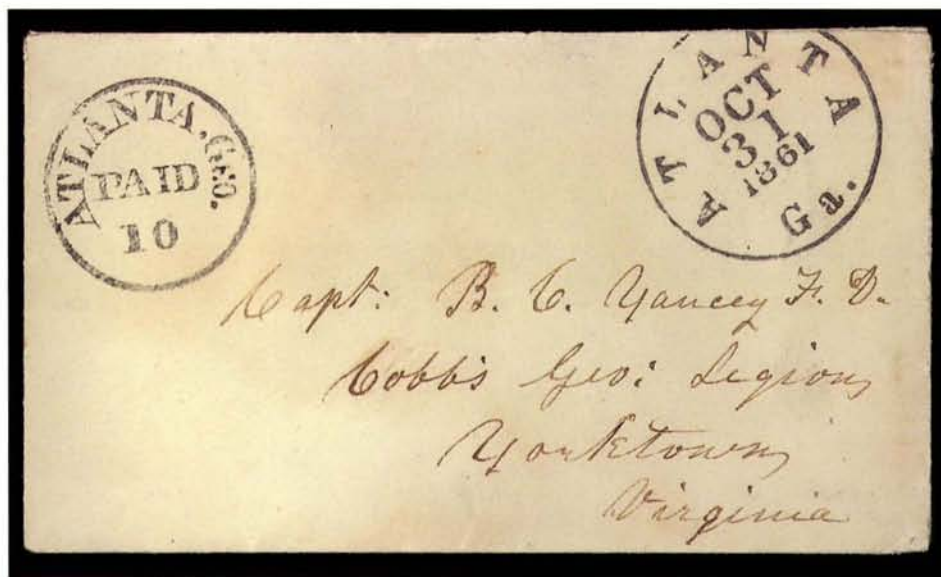 ATLANTA, GEO.
PAID
10
ATLANTA Ga.
OCT
31
1861
Capt: B. C. Yancey F. D.
Cobb's Geo: Legion
Yorktown
Virginia